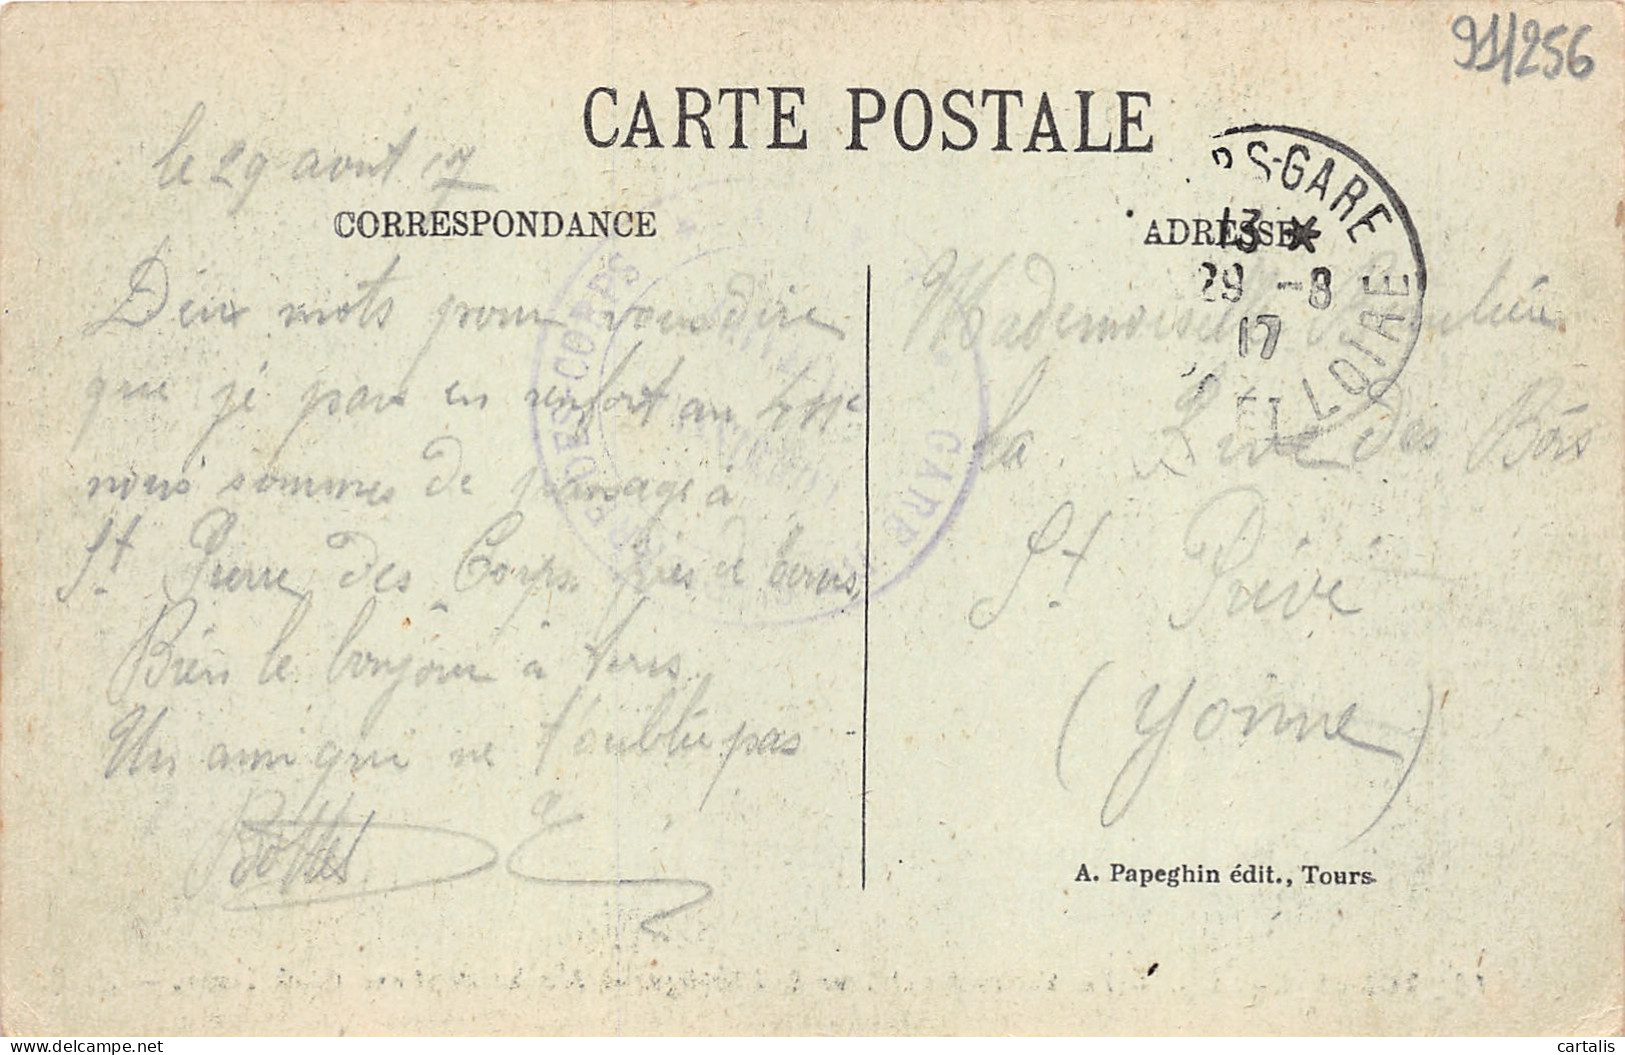 91/256
CARTE POSTALE
le 29 aout 17
CORRESPONDANCE
Deux mots pour vous dire
que je pars en renfort au
nous sommes de passage à
St. Pierre des Corps près de Tours,
Bien le bonjour à tous
Un ami qui ne t'oublie pas
ADRESSE
Mademoiselle
La Rive des Bois
St Privé
(Yonne)
PS-GARE
13 *
29 -8
17
ET LOIRE
DES-CORPS
GARE
A. Papeghin édit., Tours
cartalis